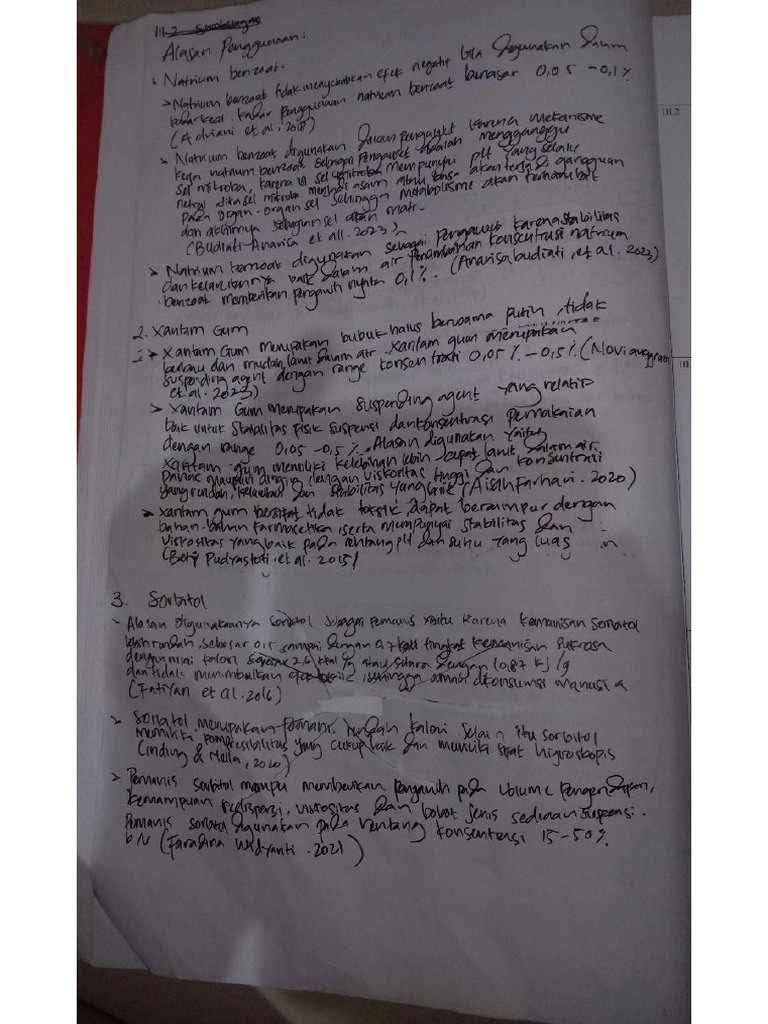 III.2 Sambungan
Alasan Penggunaan:
Natrium benzoat:
> Natrium benzoat tidak menyebabkan efek negatif bila digunakan dalam
kadar kecil. kadar penggunaan natrium benzoat berkisar 0,05 - 0,1%
(Adriani et al. 2018)
> Natrium benzoat digunakan dalam pengawet karena mekanisme
kerja natrium benzoat sebagai Pengawet adalah mengganggu
sel mikroba, karena isi sel mikroba mempunyai pH yang selalu
netral akan terjadi gangguan
pada organ-organ sel sehingga metabolisme akan terhambat
dan akhirnya sel akan mati.
(Budiati Anarisa et all. 2023)
> Natrium benzoat digunakan sebagai pengawet karena stabilitas
dan kelarutannya baik dalam air penambahan konsentrasi natrium
benzoat memberikan pengaruh nyata 0,1%. (Anarisa budiati, et al. 2023)
2. Xantam Gum
> Xantam Gum merupakan bubuk halus berwarna putih, tidak
berbau dan mudah larut dalam air. Xantam gum merupakan
suspending agent dengan range konsentrasi 0,05% - 0,5% (
et al. 2023)
> Xantam Gum merupakan suspending agent yang relatif
baik untuk stabilitas fisik suspensi dan konsentrasi pemakaian
dengan range 0,05 - 0,5%. Alasan digunakan yaitu
xantam gum memiliki kelebihan lebih dapat larut dalam air
panas maupun dingin, dengan viskositas tinggi dan konsentrasi
yang rendah, kelarutan dan stabilitas yang baik (Aisah Farhani. 2020)
> Xantam gum bersifat tidak toksik, dapat bercampur dengan
bahan-bahan farmasetika, serta mempunyai stabilitas dan
viskositas yang baik pada rentang pH dan suhu yang luas
(Boty Pudyastuti, et al. 2015)
3. Sorbitol
- Alasan digunakannya sorbitol sebagai pemanis yaitu karena kemanisan sorbitol
lebih rendah, sebesar 0,5 sampai dengan 0,7 kali tingkat kemanisan sukrosa
dengan nilai kalori sebesar 2,6 kkal/g atau setara dengan (0,87 kJ/g
dan tidak menimbulkan efek toksik, sehingga aman dikonsumsi manusia
(Fatiyan et al. 2016)
> Sorbitol merupakan pemanis rendah kalori. Selain itu sorbitol
memiliki kompresibilitas yang cukup baik dan memiliki sifat higroskopis
(inding & Nella, 2020)
> Pemanis sorbitol mampu memberikan pengaruh pada volume pengendapan,
kemampuan redispersi, viskositas dan bobot jenis sediaan suspensi.
Pemanis sorbitol digunakan pada rentang konsentrasi 15-50%.
b/v (Faradina Widyanti. 2021)
III.2
III